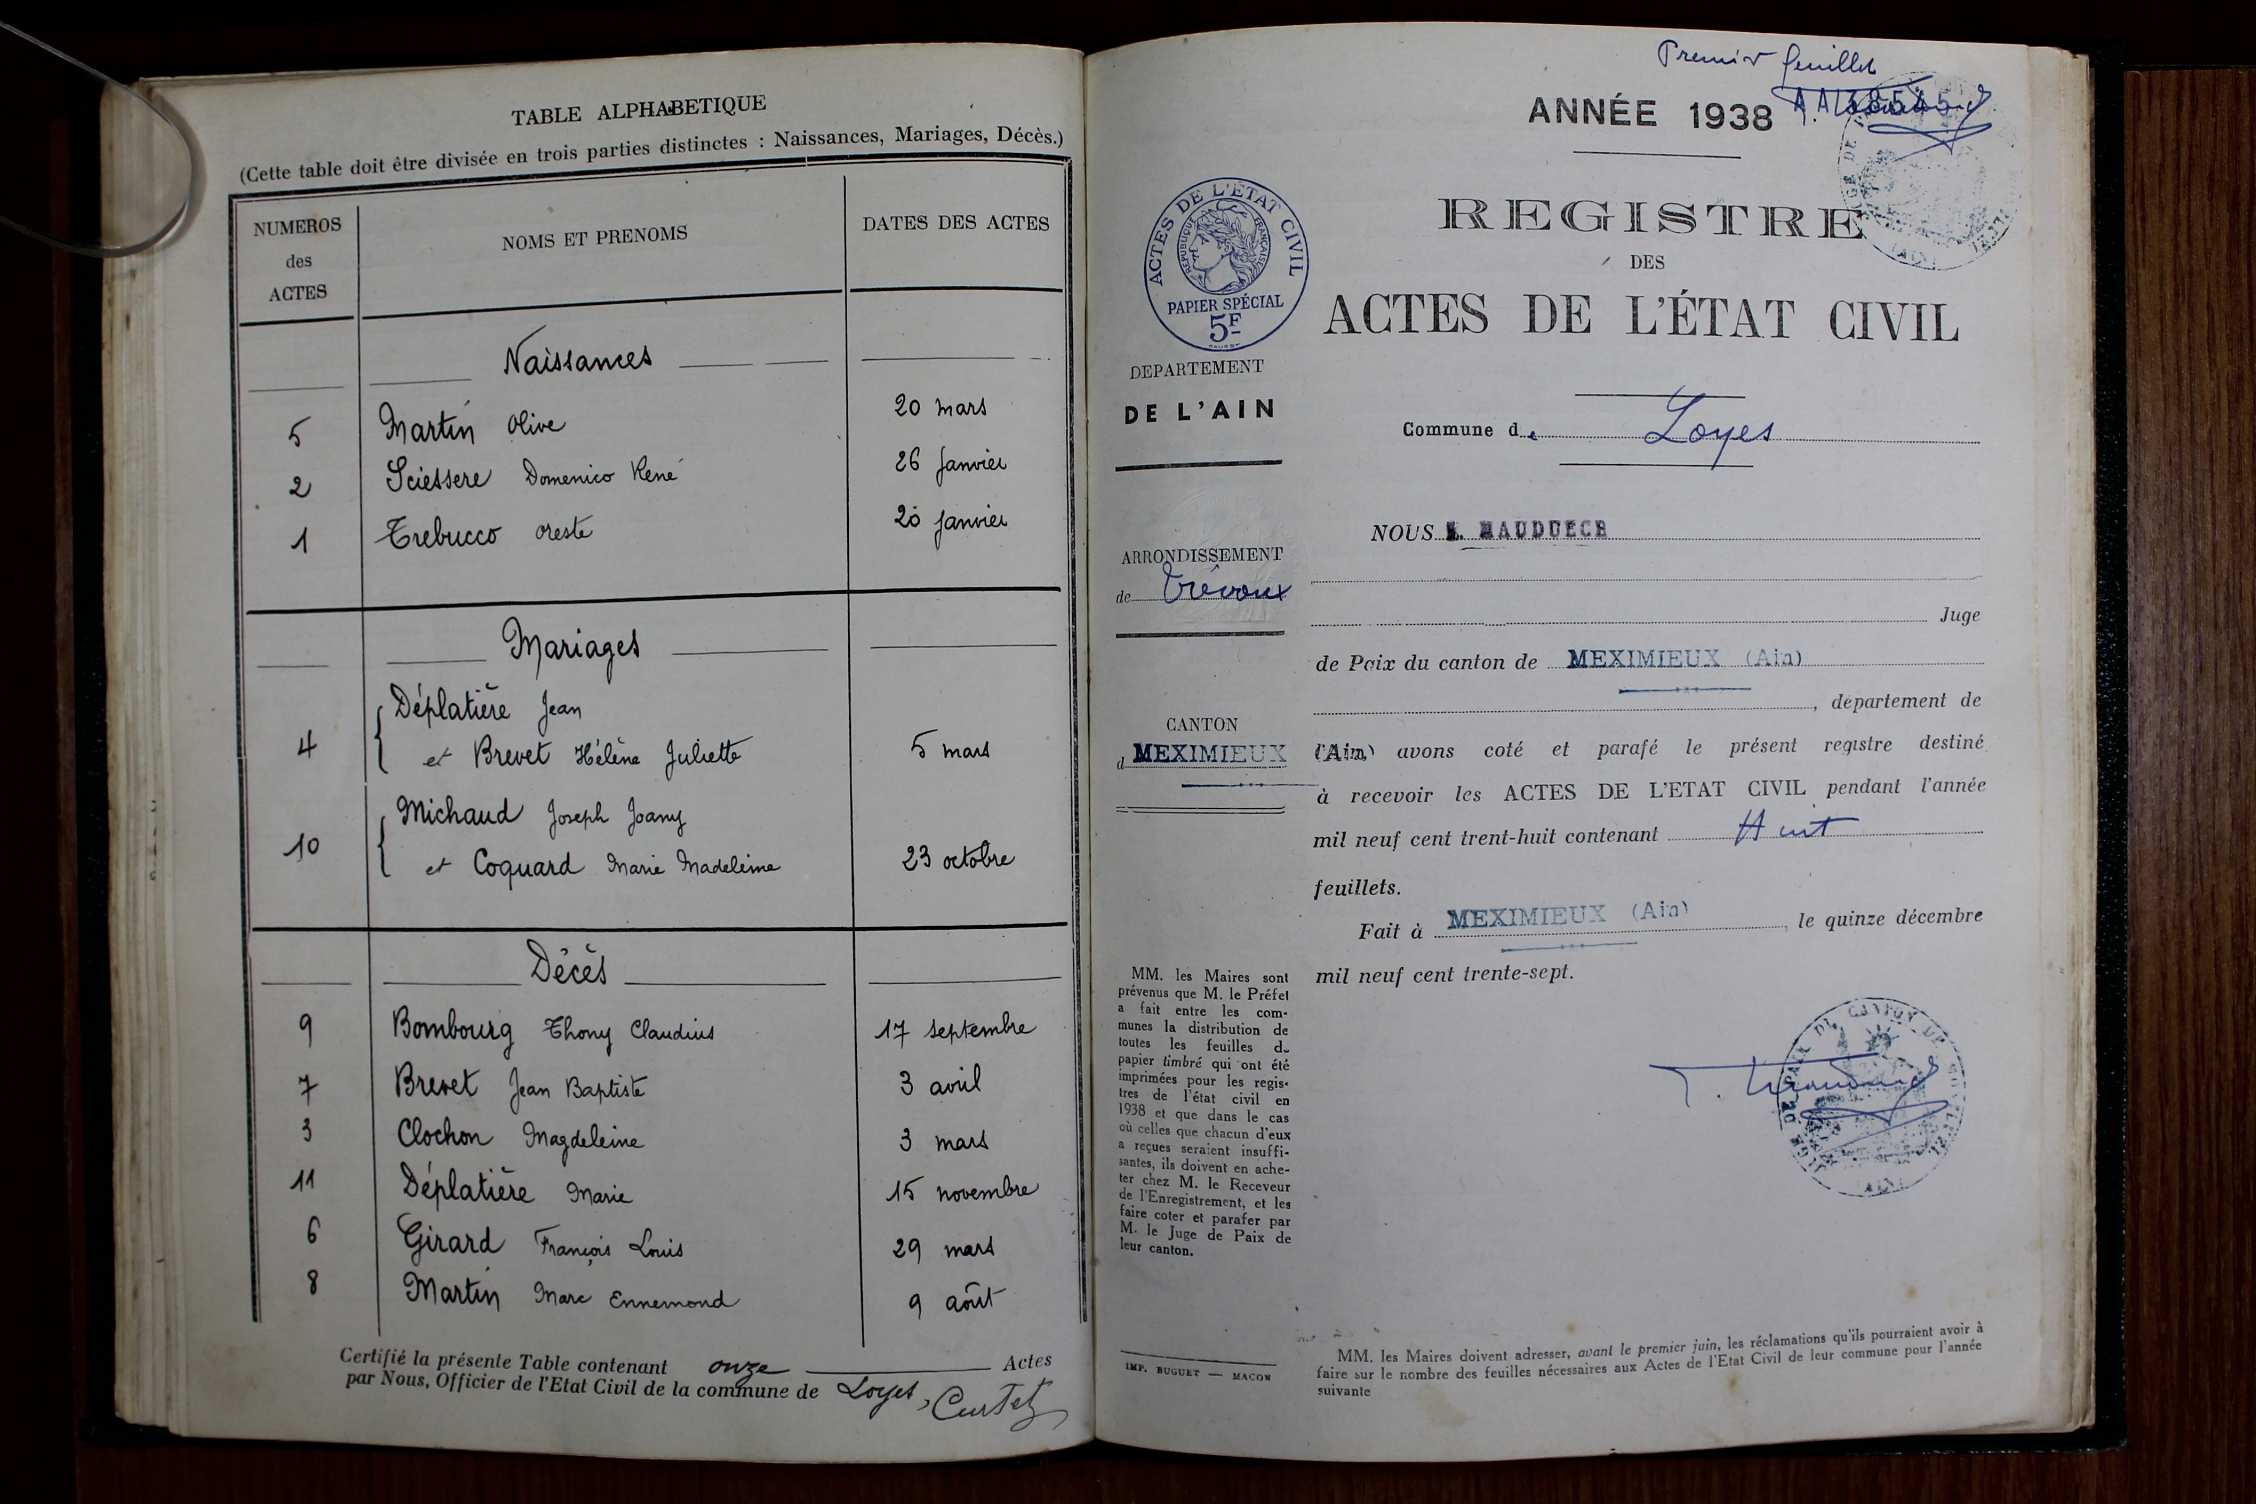 TABLE ALPHABETIQUE
(Cette table doit être divisée en trois parties distinctes : Naissances, Mariages, Décès.)
NUMEROS des ACTES
NOMS ET PRENOMS
DATES DES ACTES
Naissances
5 Martin Olive 20 mars
2 Sciessere Domenico René 26 janvier
1 Trebucco Oreste 20 janvier
Mariages
Déplatière Jean
4 et Brevet Hélène Juliette 5 mars
Michaud Joseph Joany
10 et Coquard Marie Madeleine 23 octobre
Décès
9 Bombourg Thony Claudius 17 septembre
7 Brevet Jean Baptiste 3 avril
3 Clochon Magdeleine 3 mars
11 Déplatière Marie 15 novembre
6 Girard François Louis 29 mars
8 Martin Marc Ennemond 9 août
Certifié la présente Table contenant onze Actes
par Nous, Officier de l'Etat Civil de la commune de Loyes, Curtet
Premier feuillet
ANNÉE 1938
REGISTRE
DES
ACTES DE L'ÉTAT CIVIL
ACTES DE L'ÉTAT CIVIL
RÉPUBLIQUE FRANÇAISE
PAPIER SPÉCIAL
5F
DEPARTEMENT
DE L'AIN
ARRONDISSEMENT
de Trévoux
CANTON
d MEXIMIEUX (Ain)
Commune de Loyes
NOUS
Juge
de Paix du canton de MEXIMIEUX (Ain)
, département de
l'Ain, avons coté et parafé le présent registre destiné
à recevoir les ACTES DE L'ETAT CIVIL pendant l'année
mil neuf cent trent-huit contenant Huit
feuillets.
Fait à MEXIMIEUX (Ain), le quinze décembre
mil neuf cent trente-sept.
MM. les Maires sont
prévenus que M. le Préfet
a fait entre les com-
munes la distribution de
toutes les feuilles de
papier timbré qui ont été
imprimées pour les regis-
tres de l'état civil en
1938 et que dans le cas
où celles que chacun d'eux
a reçues seraient insuffi-
santes, ils doivent en ache-
ter chez M. le Receveur
de l'Enregistrement, et les
faire coter et parafer par
M. le Juge de Paix de
leur canton.
IMP. BUGUET — MACON
MM. les Maires doivent adresser, avant le premier juin, les réclamations qu'ils pourraient avoir à
faire sur le nombre des feuilles nécessaires aux Actes de l'Etat Civil de leur commune pour l'année
suivante